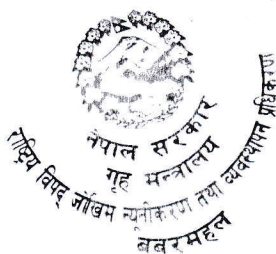 नेपाल सरकार
गृह मन्त्रालय
राष्ट्रिय विपद् जोखिम न्यूनीकरण तथा व्यवस्थापन प्राधिकरण
बबरमहल